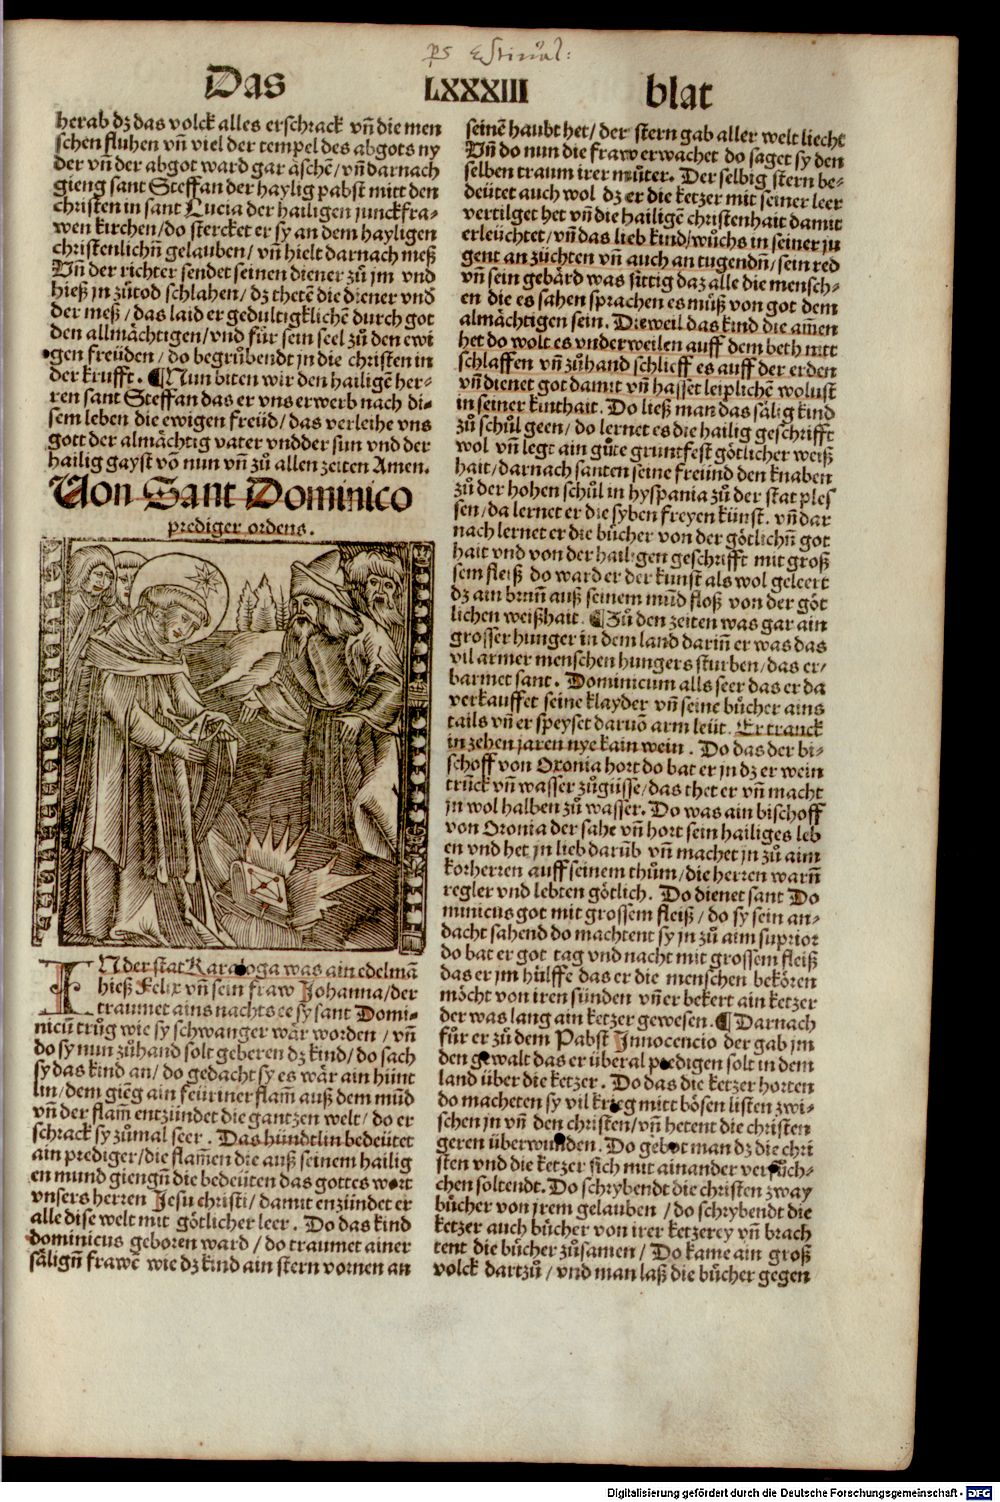 ps Estiual:
Das LXXXIII blat
herab dz das volck alles erschrack vn̄ die men
schen fluhen vn̄ viel der tempel des abgots ny
der vn̄ der abgot ward gar äschē/vn̄ darnach
gieng sant Steffan der haylig pabst mitt den
christen in sant Lucia der hailigen junckfra-
wen kirchen/do stercket er sy an dem hayligen
christenlichn̄ gelauben/vn̄ hielt darnach meß
Vn̄ der richter sendet seinen diener zů jm vnd
hieß jn zůtod schlahen/dz thetē die diener vnd
der meß/das laid er gedultigklichē durch got
den allmächtigen/vnd für sein seel zů den ewi
gen freüden/do begrůbendt jn die christen in
der krufft. ¶Nun biten wir den hailigē her-
ren sant Steffan das er vns erwerb nach di-
sem leben die ewigen freüd/das verleihe vns
gott der almächtig vater vndder sun vnd der
hailig gayst vō nun vn̄ zů allen zeiten Amen.
Von Sant Dominico
prediger ordens.
IN der stat Karaloga was ain edelmā
hieß Felix vn̄ sein fraw Johanna/der
traumet ains nachts ee sy sant Domi-
nicū trůg wie sy schwanger wär worden/vn̄
do sy nun zůhand solt geberen dz kind/do sach
sy das kind an/do gedacht sy es wär ain hünt
lin/dem giēg ain feüriner flam̄ auß dem mūd
vn̄ der flam̄ entzündet die gantzen welt/do er
schrack sy zůmal seer. Das hündtlin bedeütet
ain prediger/die flam̄en die auß seinem hailig
en mund giengn̄ die bedeüten das gottes wort
vnsers herren Jesu christi/damit enzündet er
alle dise welt mit götlicher leer. Do das kind
dominicus geboren ward/do traumet ainer
sälign̄ frawē wie dz kind ain stern vornen an
seinē haubt het/der stern gab aller welt liecht
Vn̄ do nun die fraw erwachet do saget sy den
selben traum irer můter. Der selbig stern be-
deütet auch wol dz er die ketzer mit seiner leer
vertilget het vn̄ die hailigē christenhait damit
erleüchtet/vn̄ das lieb kind/wůchs in seiner ju
gent an züchten vn̄ auch an tugendn̄/sein red
vn̄ sein gebärd was sittig daz alle die mensch-
en die es sahen sprachen es můß von got dem
almächtigen sein. Dieweil das kind die am̄en
het do wolt es vnderweilen auff dem beth nitt
schlaffen vn̄ zůhand schlieff es auff der erden
vn̄ dienet got damit vn̄ hasset leiplichē wolust
in seiner kinthait. Do ließ man das sälig kind
zů schůl geen/do lernet es die hailig geschrifft
wol vn̄ legt ain gůte gruntfest götlicher weiß
hait/darnach santen seine freünd den knaben
zů der hohen schůl in hyspania zů der stat ples
sen/da lernet er die syben freyen künst. vn̄ dar
nach lernet er die bücher von der götlichn̄ got
hait vnd von der hailigen geschrifft mit groß
sem fleiß do ward er der kunst als wol geleert
dz ain brun̄ auß seinem mūd floß von der göt
lichen weißhait. ¶Zů den zeiten was gar ain
grosser hunger in dem land darin̄ er was das
vil armer menschen hungers sturben/das er-
barmet sant. Dominicum alls seer das er da
verkauffet seine klayder vn̄ seine bücher ains
tails vn̄ er speyset daruō arm leüt. Er tranck
in zehen jaren nye kain wein. Do das der bi-
schoff von Oxonia hort do bat er jn dz er wein
trūck vn̄ wasser zůgüsse/das thet er vn̄ macht
jn wol halben zů wasser. Do was ain bischoff
von Oronia der sahe vn̄ hort sein hailiges leb
en vnd het jn lieb darūb vn̄ machet jn zů aim
korherren auff seinem thům/die herren warn̄
regler vnd lebten götlich. Do dienet sant Do
minicus got mit grossem fleiß/do sy sein an-
dacht sahend do machtent sy jn zů aim suprior
do bat er got tag vnd nacht mit grossem fleiß
das er jm hülffe das er die menschen bekören
möcht von iren sünden vn̄ er bekert ain ketzer
der was lang ain ketzer gewesen. ¶Darnach
fůr er zů dem Pabst Innocencio der gab jm
den gewalt das er überal predigen solt in dem
land über die ketzer. Do das die ketzer horten
do macheten sy vil krieg mitt bösen listen zwi-
schen jn vn̄ den christen/vn̄ hetent die christen
geren überwunden. Do gebot man dz die chri
sten vnd die ketzer sich mit ainander versůch-
chen soltendt. Do schrybendt die christen zway
bücher von jrem gelauben/do schrybendt die
ketzer auch bücher von irer ketzerey vn̄ brach
tent die bücher zůsamen/Do kame ain groß
volck dartzů/vnd man laß die bücher gegen
Digitalisierung gefördert durch die Deutsche Forschungsgemeinschaft - DFG